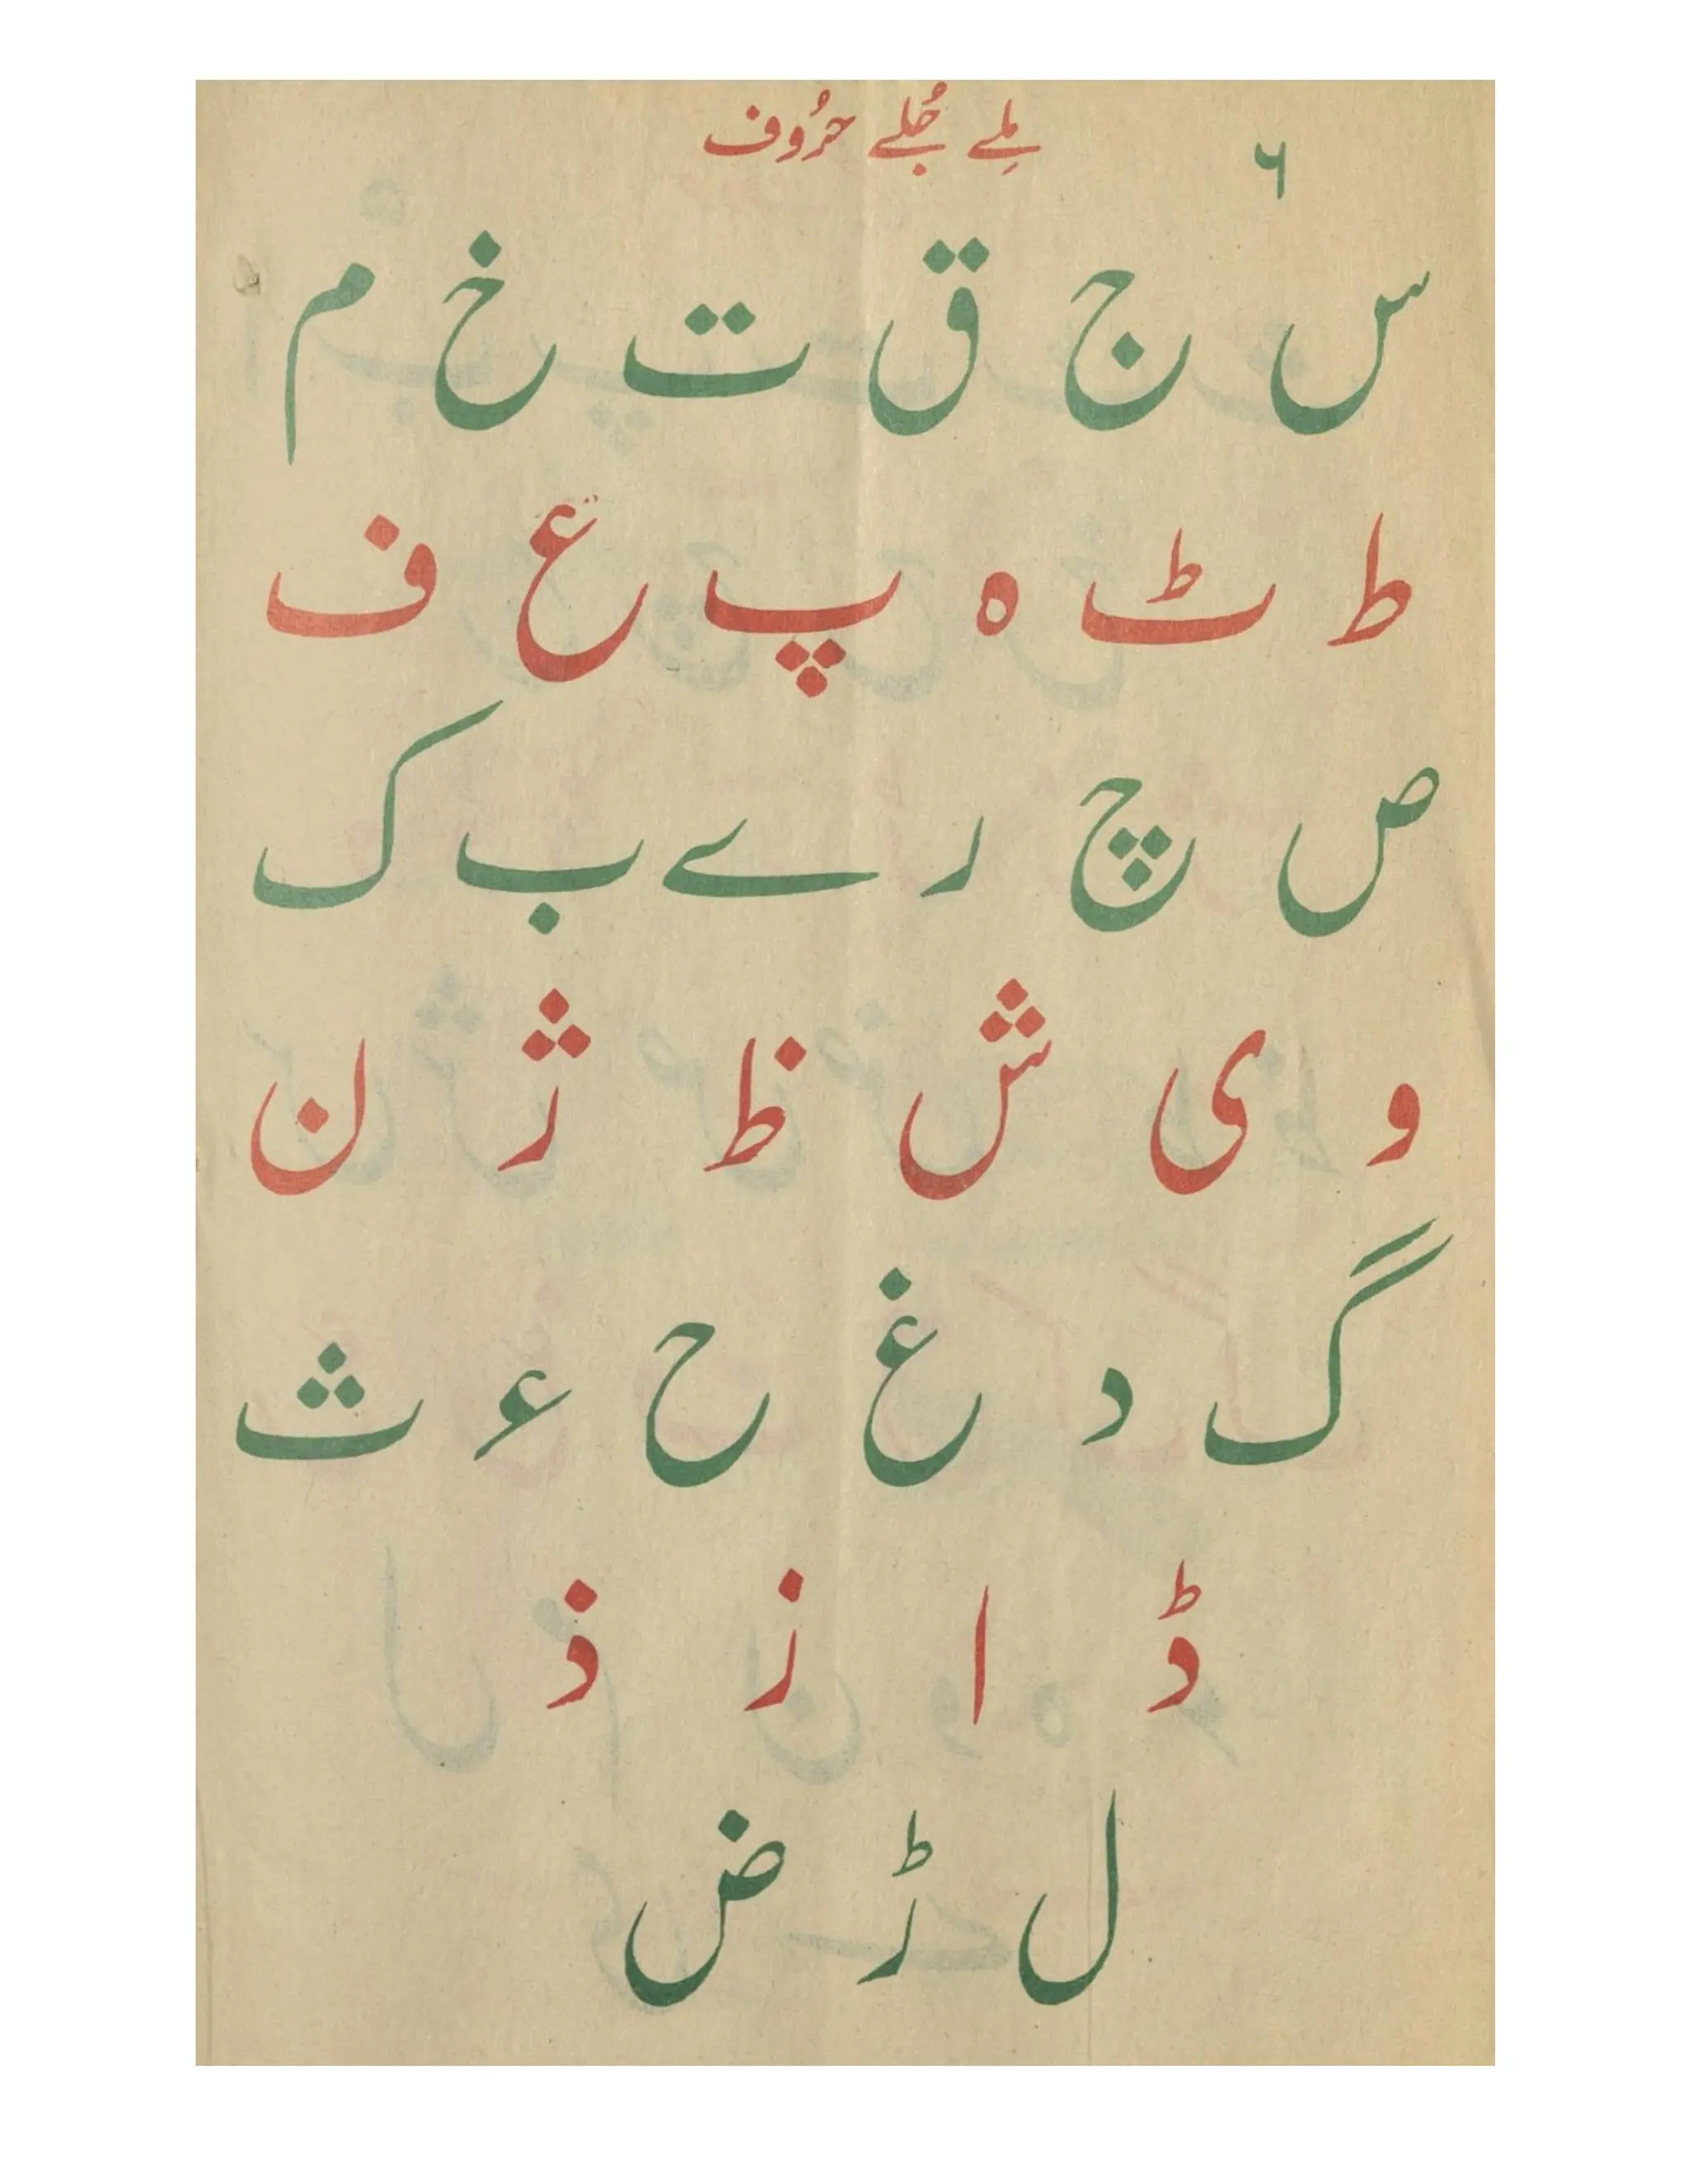 ۶
مِلے جُلے حرُوف
س ج ق ت خ م
ط ٹ ہ پ ع ف
ص چ ر ے ب ک
و ی ش ظ ژ ن
گ د غ ح ء ث
ڈ ا ز ذ
ل ڑ ض